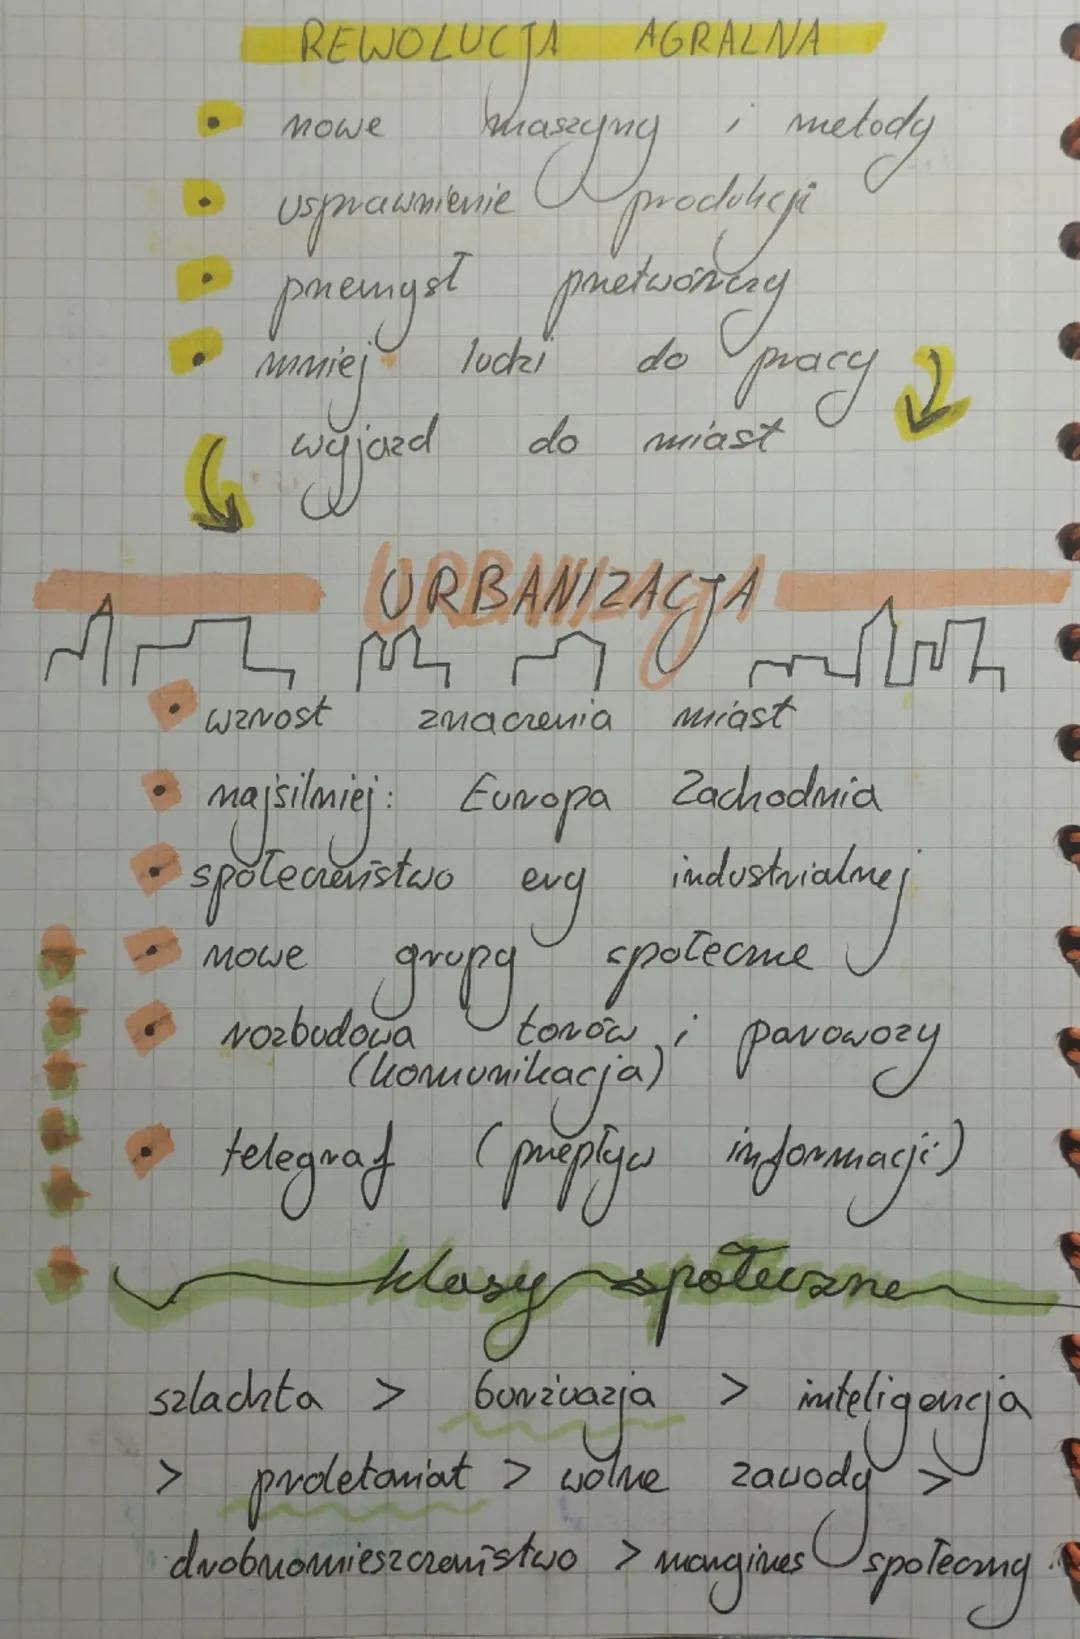 REWOLUCJA AGRALNA
• nowe maszyny i metody
• usprawnienie produkcji
• przemysł przetwórczy
• mniej ludzi do pracy
wyjazd do miast
URBANIZACJA
• wzrost znaczenia miast
• najsilniej: Europa Zachodnia
• społeczeństwo ery industrialnej
• nowe grupy społeczne
• rozbudowa torów i parowozy
(komunikacja)
• telegraf (przepływ informacji)
klasy społeczne
szlachta > burżuazja > inteligencja
> proletariat > wolne zawody >
drobnomieszczeństwo > margines społeczny